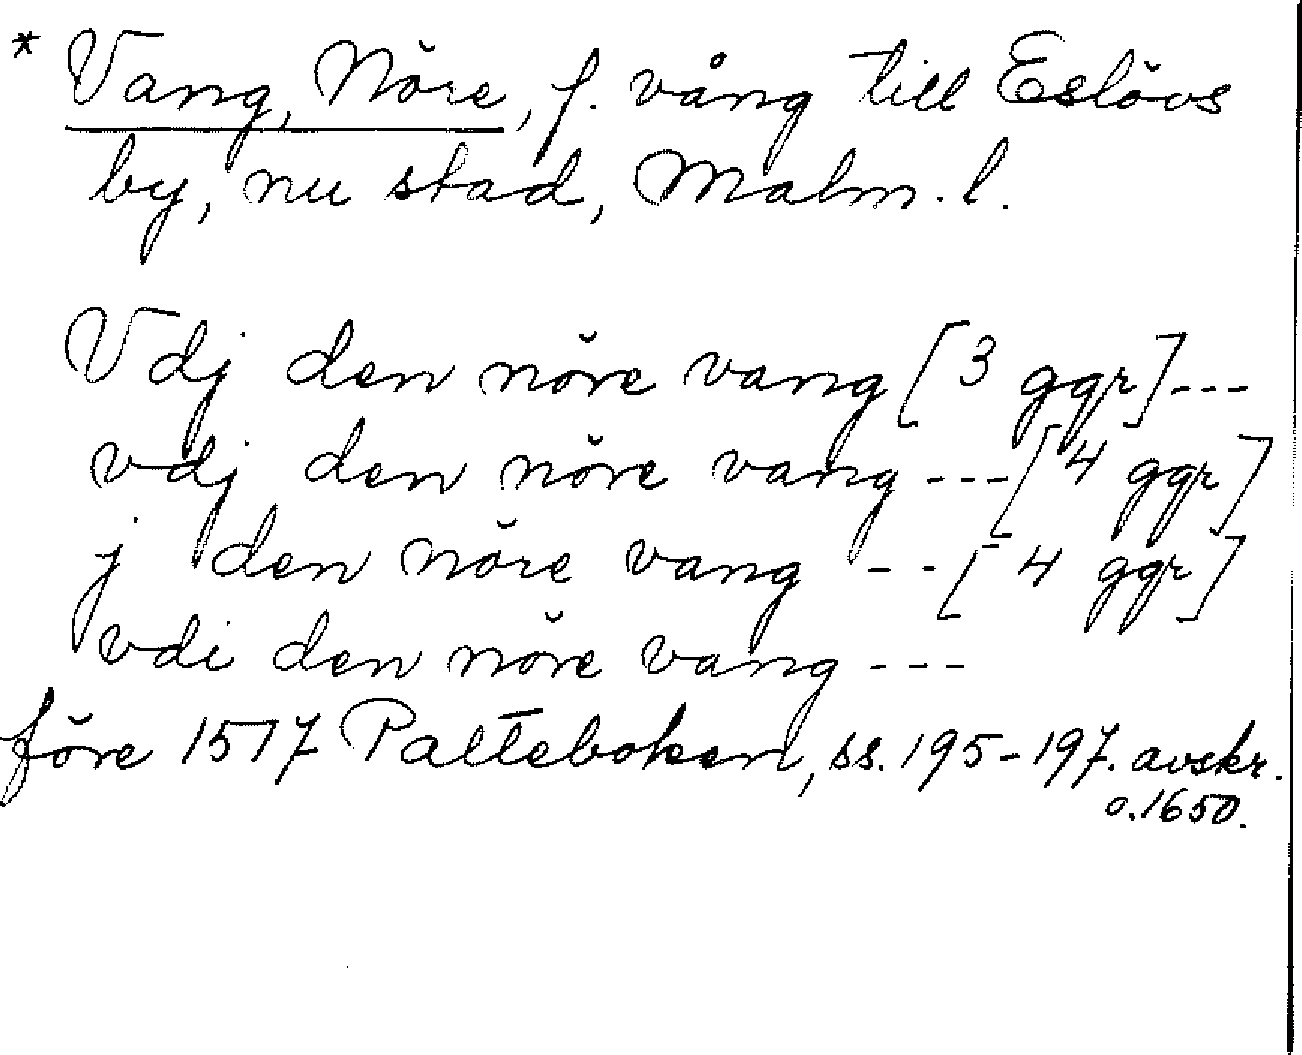 * Vang, Nöre, f. vång till Eslövs
by, nu stad, Malm. l.
Vdj den nöre vang [3 ggr]---
vdj den nöre vang ---[4 ggr]
j den nöre vang --[4 ggr]
vdi den nöre vang ---
före 1517 Palteboken, ss. 195-197. avskr.
o. 1650.